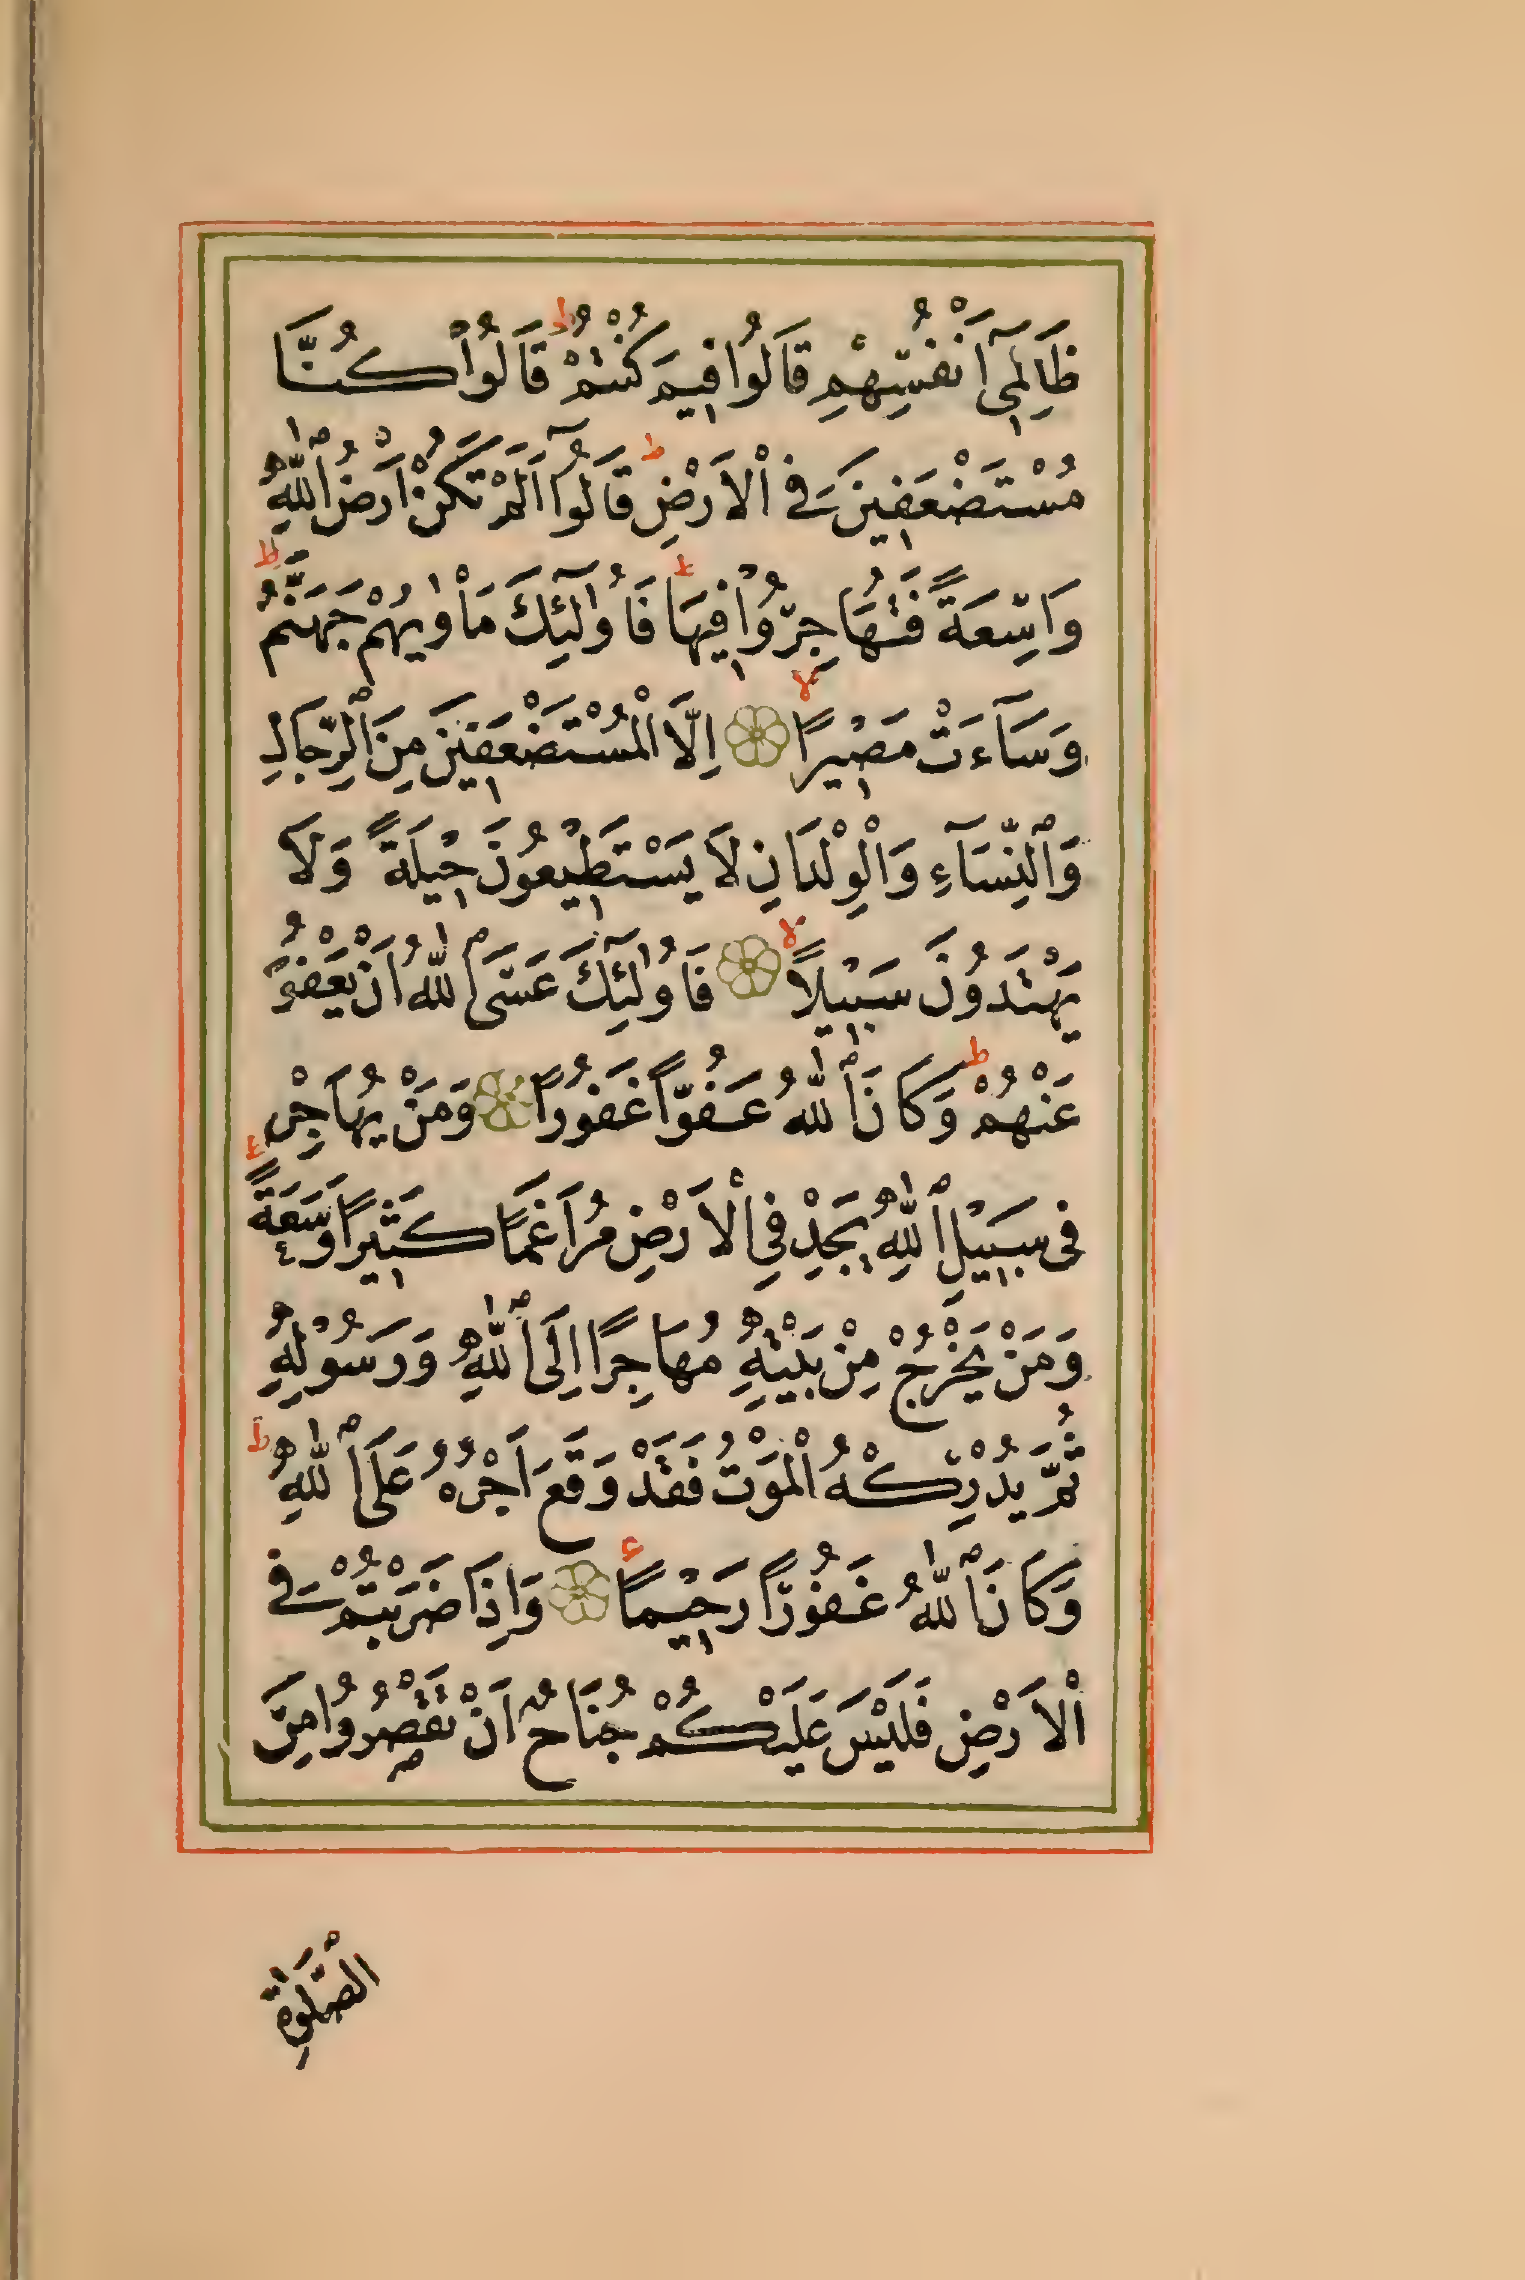 ظَالِمِىٓ اَنْفُسِهِمْ قَالُوا فِيمَ كُنْتُمْ ط قَالُوا كُنَّا
مُسْتَضْعَفِينَ فِى الْاَرْضِ ط قَالُوٓا اَلَمْ تَكُنْ اَرْضُ اللّٰهِ
وَاسِعَةً فَتُهَاجِرُوا فِيهَا ط فَاُولٰٓئِكَ مَاْوٰيهُمْ جَهَنَّمُ ط
وَسَآءَتْ مَصِيْرًا لا اِلَّا الْمُسْتَضْعَفِينَ مِنَ الرِّجَالِ
وَالنِّسَآءِ وَالْوِلْدَانِ لَا يَسْتَطِيْعُونَ حِيْلَةً وَلَا
يَهْتَدُونَ سَبِيْلًا لا فَاُولٰٓئِكَ عَسَى اللّٰهُ اَنْ يَعْفُوَ
عَنْهُمْ ط وَكَانَ اللّٰهُ عَفُوًّا غَفُورًا وَمَنْ يُهَاجِرْ
فِى سَبِيْلِ اللّٰهِ يَجِدْ فِى الْاَرْضِ مُرَاغَمًا كَثِيْرًا وَسَعَةً ط
وَمَنْ يَخْرُجْ مِنْ بَيْتِهٖ مُهَاجِرًا اِلَى اللّٰهِ وَرَسُوْلِهٖ
ثُمَّ يُدْرِكْهُ الْمَوْتُ فَقَدْ وَقَعَ اَجْرُهُ عَلَى اللّٰهِ ط
وَكَانَ اللّٰهُ غَفُوْرًا رَحِيْمًا ع وَاِذَا ضَرَبْتُمْ فِى
الْاَرْضِ فَلَيْسَ عَلَيْكُمْ جُنَاحٌ اَنْ تَقْصُرُوا مِنَ
الصَّلٰوةِ